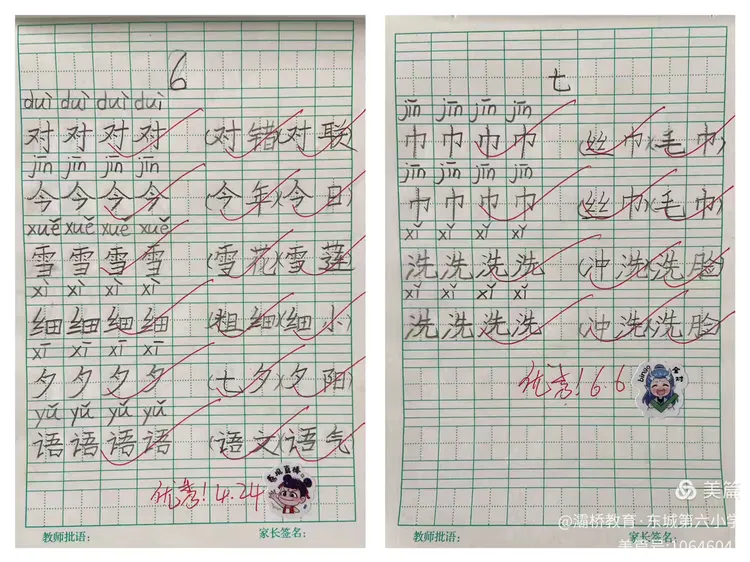 6
duì duì duì duì
对 对 对 对 (对 错)(对 联)
jīn jīn jīn jīn
今 今 今 今 (今 年)(今 日)
xuě xuě xuě xuě
雪 雪 雪 雪 (雪 花)(雪 莲)
xì xì xì xì
细 细 细 细 (粗 细)(细 小)
xī xī xī xī
夕 夕 夕 夕 (七 夕)(夕 阳)
yǔ yǔ yǔ yǔ
语 语 语 语 (语 文)(语 气)
优秀!4.24
教师批语: 家长签名:
七
jīn jīn jīn jīn
巾 巾 巾 巾 (丝 巾)(毛 巾)
jīn jīn jīn jīn
巾 巾 巾 巾 (丝 巾)(毛 巾)
xǐ xǐ xǐ xǐ
洗 洗 洗 洗 (冲 洗)(洗 脸)
xǐ xǐ xǐ xǐ
洗 洗 洗 洗 (冲 洗)(洗 脸)
优秀!6.6
bingo 全对
教师批语: 家长签名:
美篇
@灞桥教育·东城第六小学
美篇号:1064604